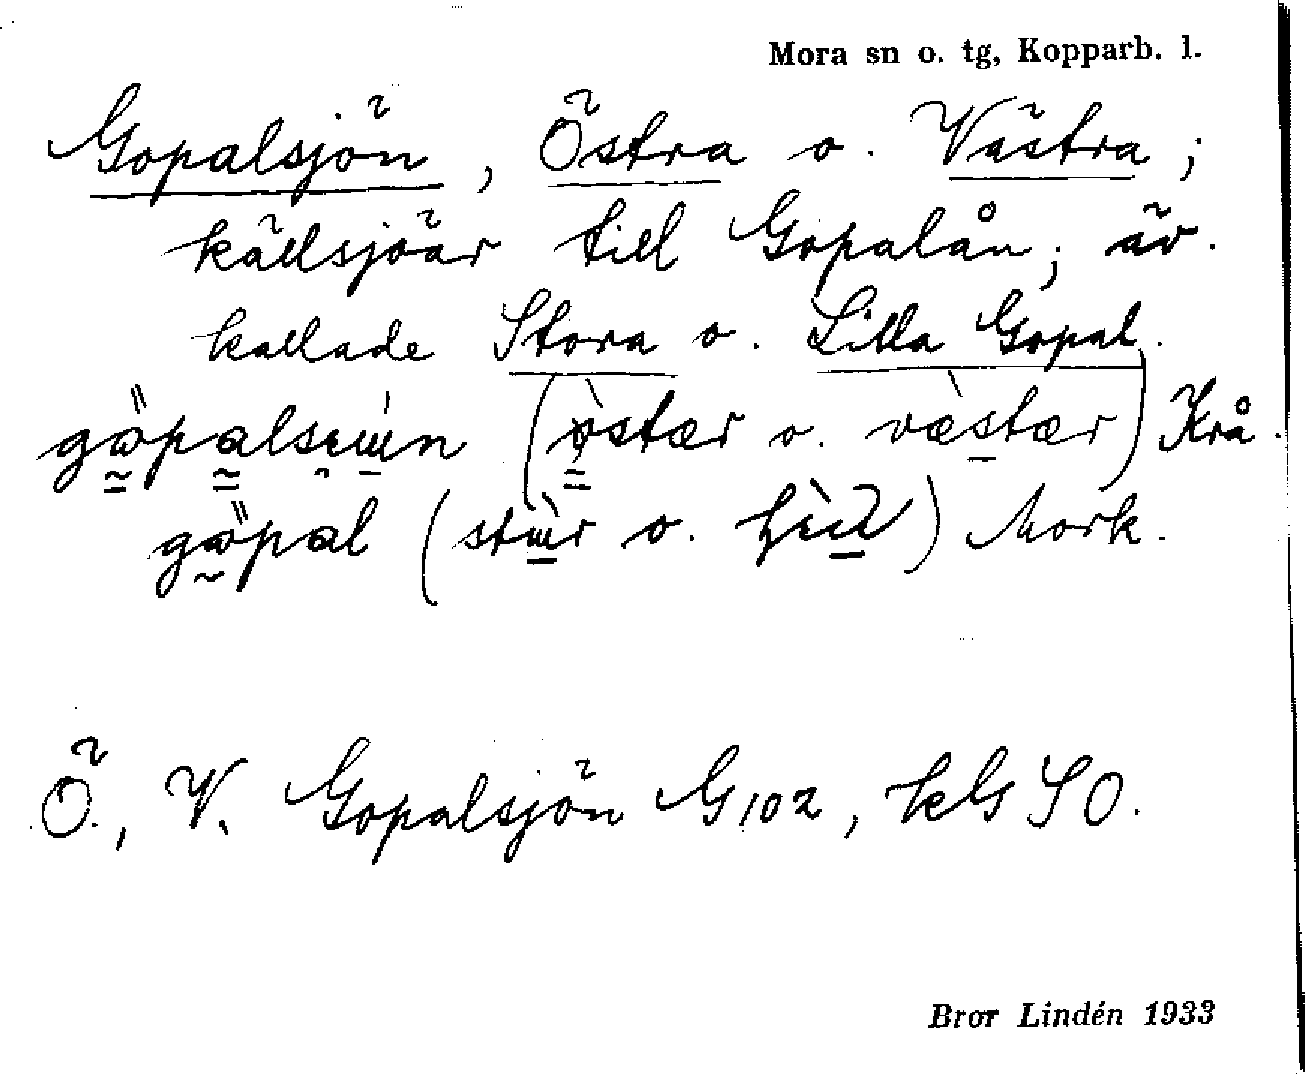 Mora sn o. tg, Kopparb. l.
Gopalsjön, Östra o. Västra;
källsjöar till Gopalån; äv.
kallade Stora o. Lilla Gopal.
(östær o. væ̀stær) Krå.
gopal (stɯ̀r o. Mork.
Ö., V. Gopalsjön G102, hbG SO.
Bror Lindén 1933